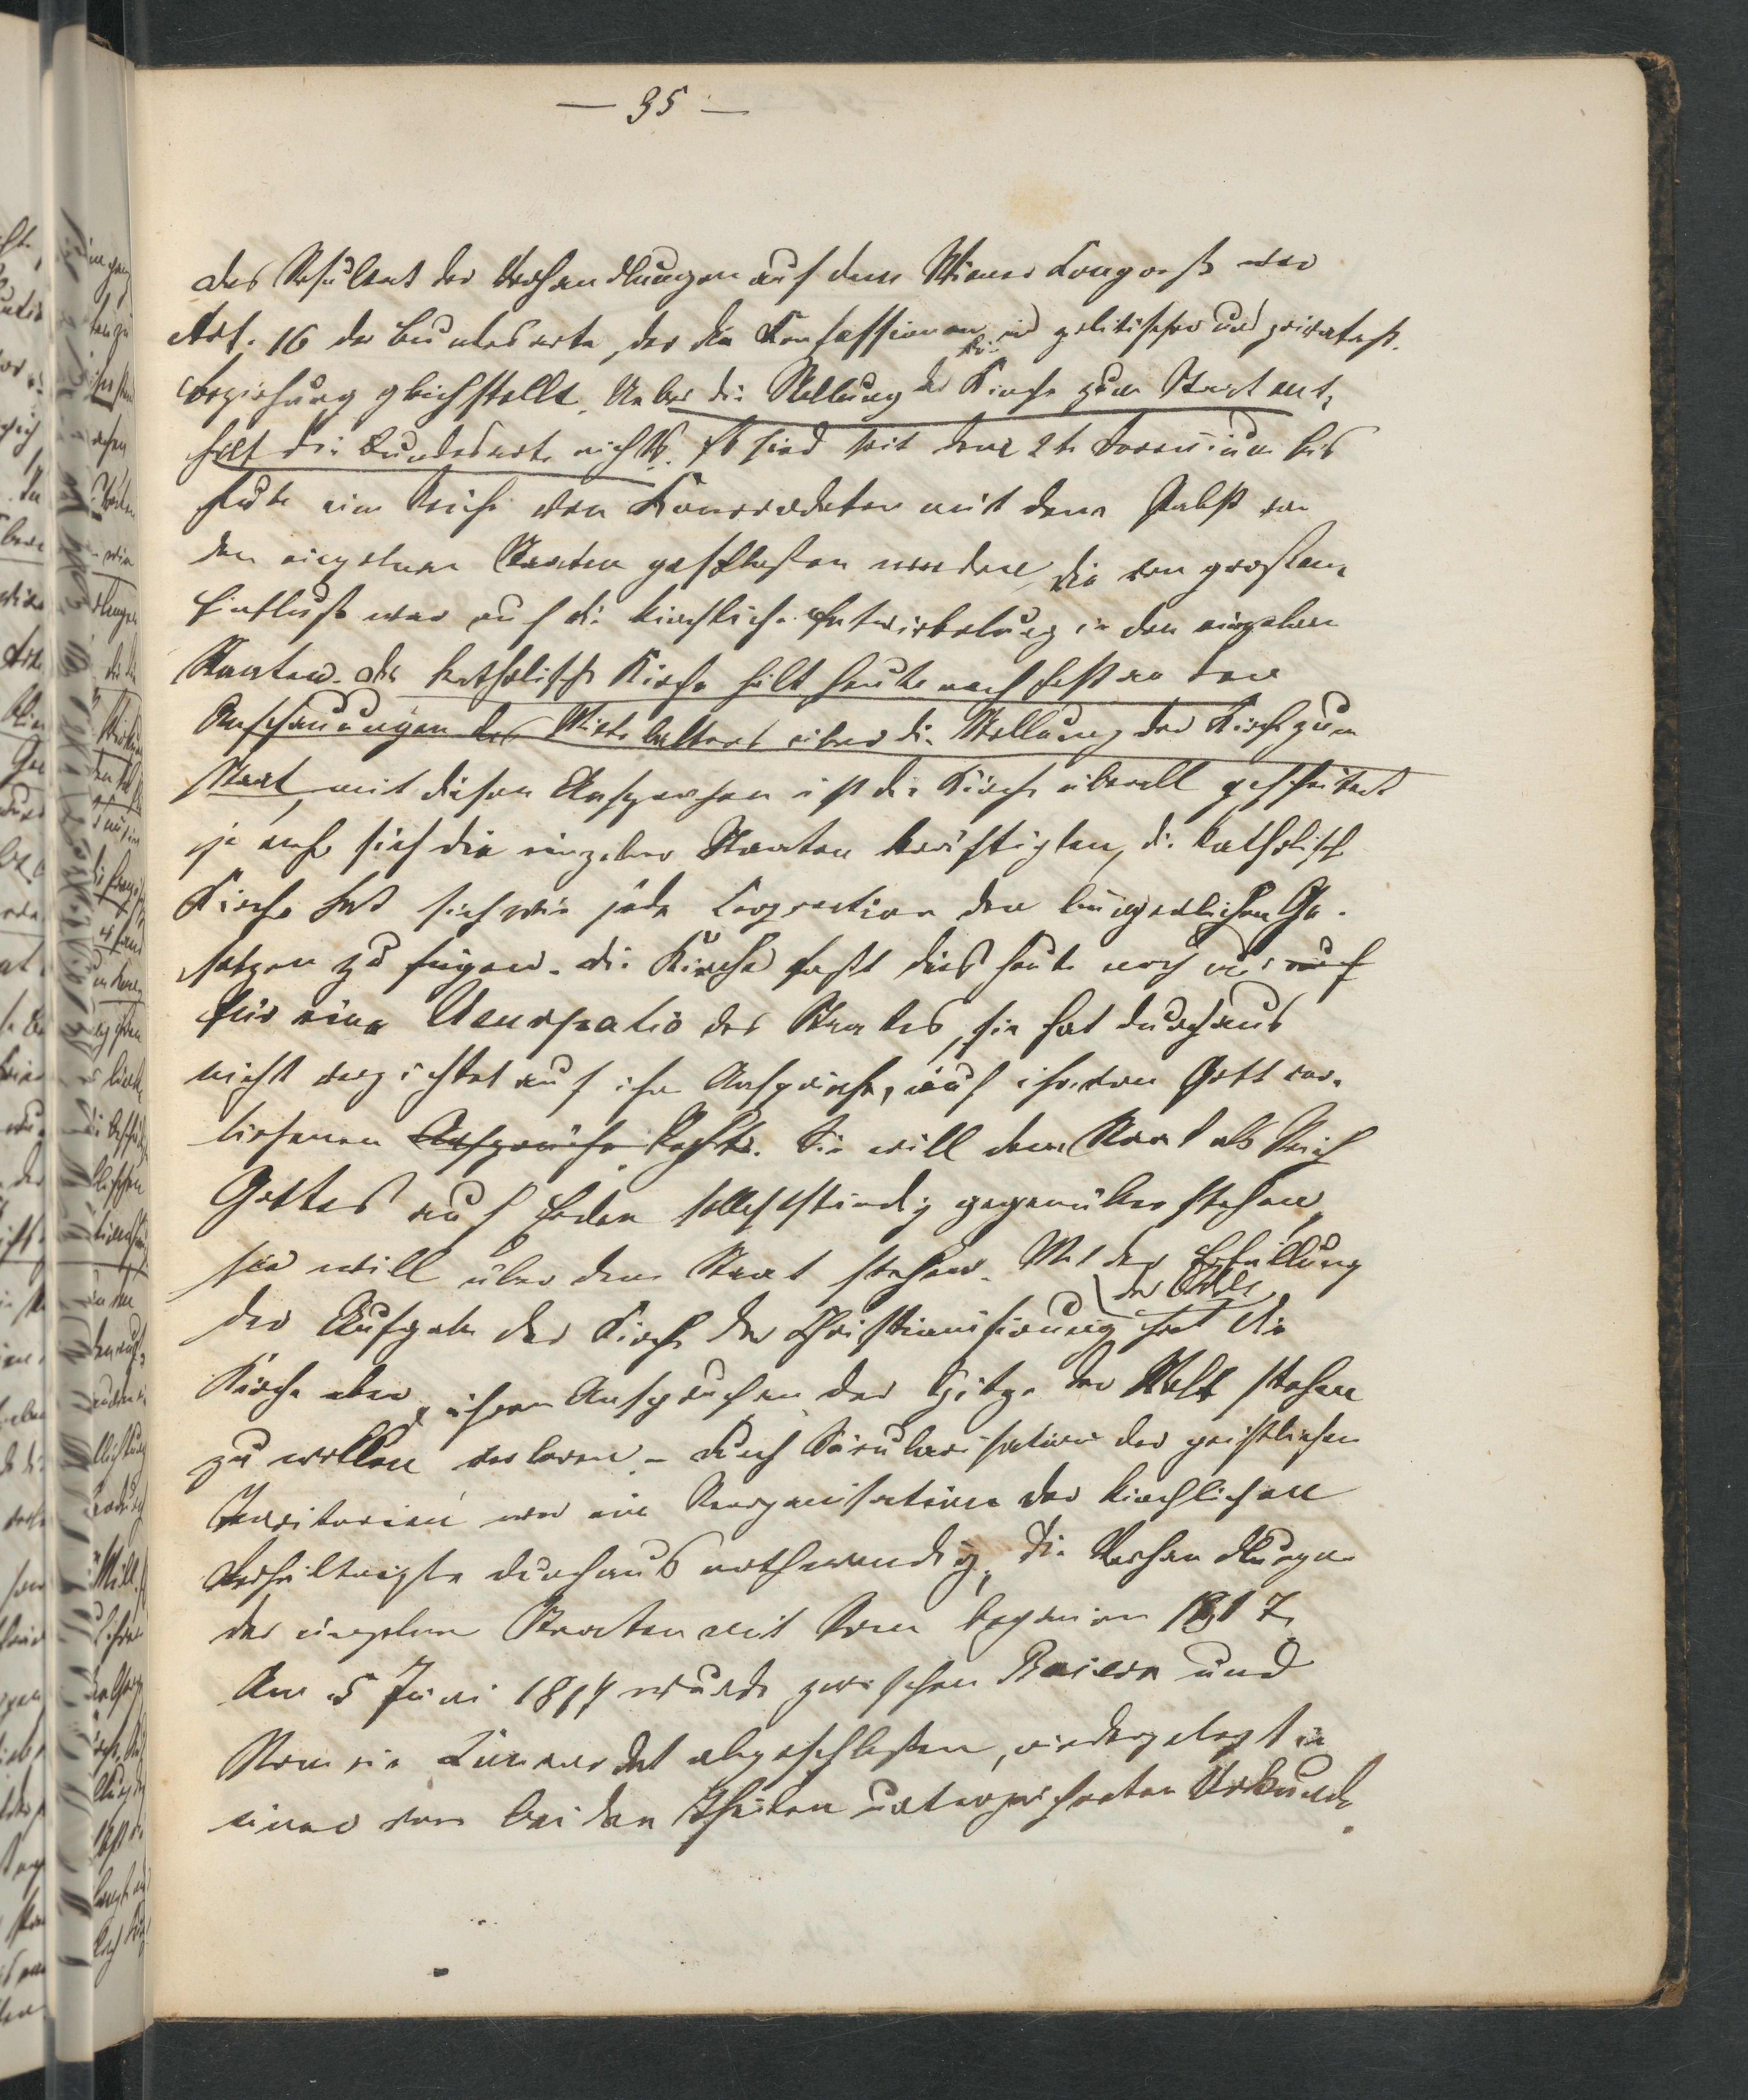 — 35 —
das Resultat der Verhandlungen auf dem Wiener Congreß war
Art. 16 der Bundesacte, der die Confessionen in politischer und privatrechtl.
Beziehung gleichstellt. Ueber die Stellung der Kirche zum Staat ent-
hält die Bundesacte nichts. Es sind seit dem 2t. Decennium bis
heute eine Reihe von Concordaten mit dem Pabst von
den einzelnen Staaten geschloßen worden, die von großem
Einfluß war auf die kirchliche Entwickelung in den einzelnen
Staaten. die katholische Kirche hält heute noch fest an den
Anschauungen des Mittelalters über die Stellung der Kirche zum
Staat, mit diesen Ansprüchen ist die Kirche überall gescheitert
je mehr sich die einzelnen Staaten kräftigten, die katholische
Kirche hat sich wie jede Corporation den bürgerlichen Ge-
setzen zu fügen. die Kirche faßt dies heute noch nur auf
für eine Usurpatio des Staates, sie hat durchaus
nicht verzichtet auf ihre Ansprüche, auf ihr von Gott ver-
liehenen Ansprüche Rechte. Sie will dem Staat als Reich
Gottes auf Erden selbstständig gegenüber stehen,
sie will über dem Staat stehen. Mit der Erfüllung
der Völker
der Aufgabe der Kirche der Christianisierung hat die
Kirche aber ihren Anspruch an der Spitze der Welt stehen
zu wollen verloren. – durch Säcularisation der geistlichen
Territorien war eine Reorganisation der kirchlichen
Verhältniße durchaus nothwendig, die Verhandlungen
der einzelnen Staaten mit Rom beginnen 1817.
Am 5 Juni 1817 wurde zwischen Baiern und
Rom ein Concordat abgeschloßen, niedergelegt in
einer von beiden Theilen unterzeichneten Urkunde.